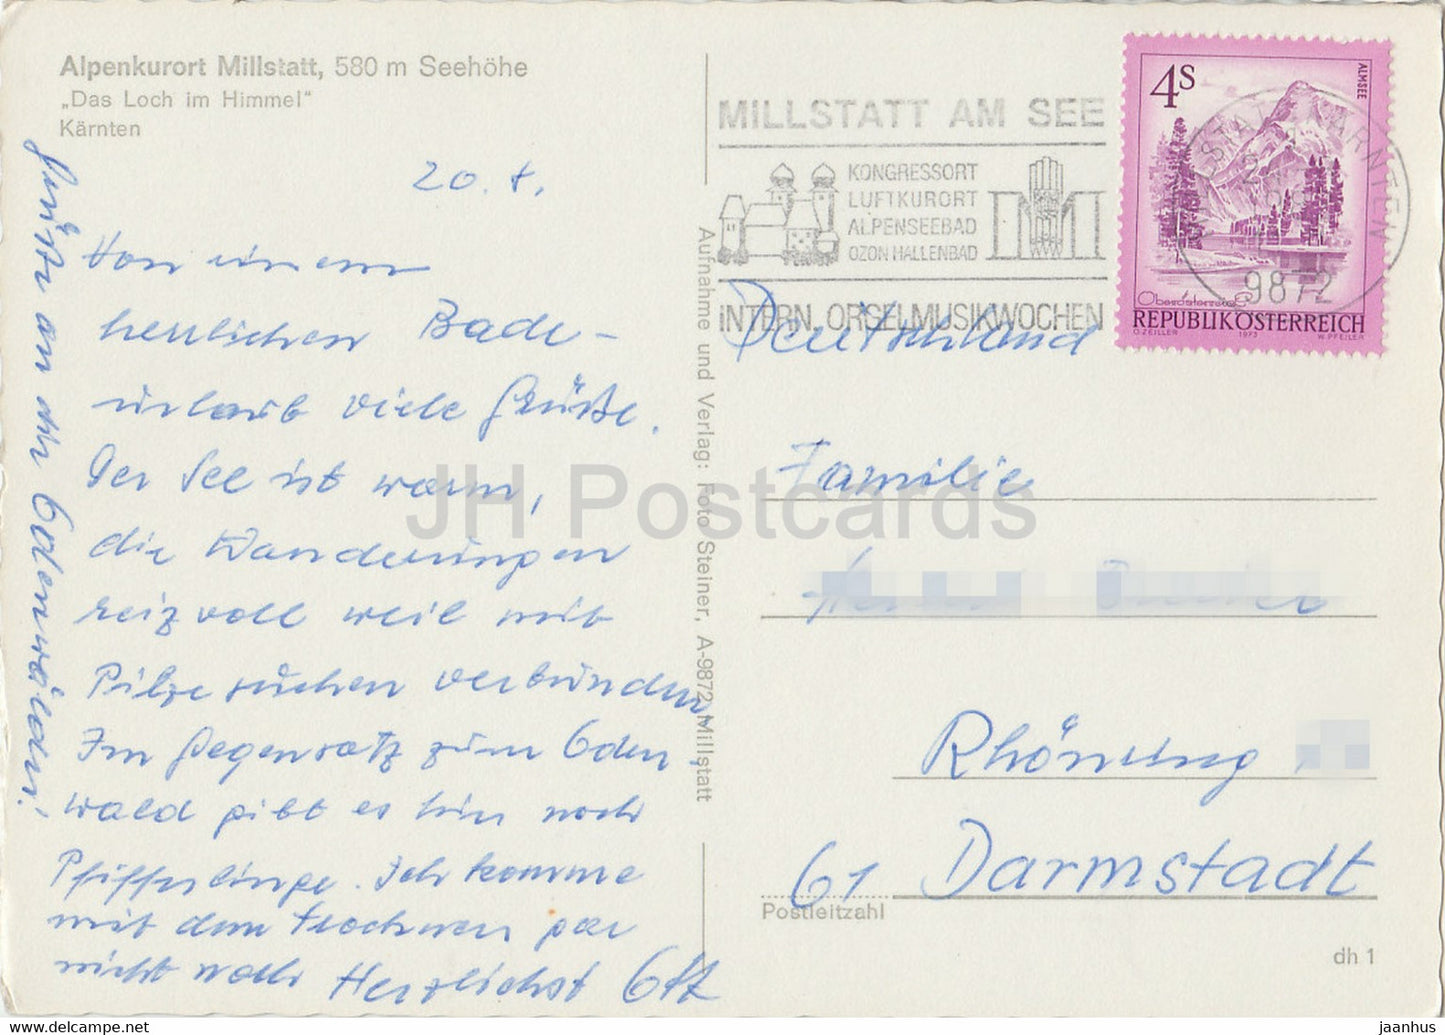 Alpenkurort Millstatt, 580 m Seehöhe
„Das Loch im Himmel"
Kärnten
20. 8.
Von einem
herrlichen Bade-
urlaub viele Grüße.
Der See ist warm,
die Wanderungen
reizvoll weil mit
Pilze suchen verbunden.
Im Gegensatz zum Oden
wald gibt es hier noch
Pfifferlinge. Ich komme
mit dem trocknen gar
nicht nach Herzlichst
Grüße an die Odenwälder!
Aufnahme und Verlag: Foto Steiner, A-9872 Millstatt
MILLSTATT AM SEE
KONGRESSORT
LUFTKURORT
ALPENSEEBAD
OZON HALLENBAD
INTERN. ORGELMUSIKWOCHEN
9872
4S
ALMSEE
Oberösterreich
REPUBLIK ÖSTERREICH
O.ZEILLER 1973 W.PFEILER
Deutschland
Familie
Rhönring
61 Darmstadt
Postleitzahl
dh 1
JH Postcards
www.delcampe.net
jaanhus